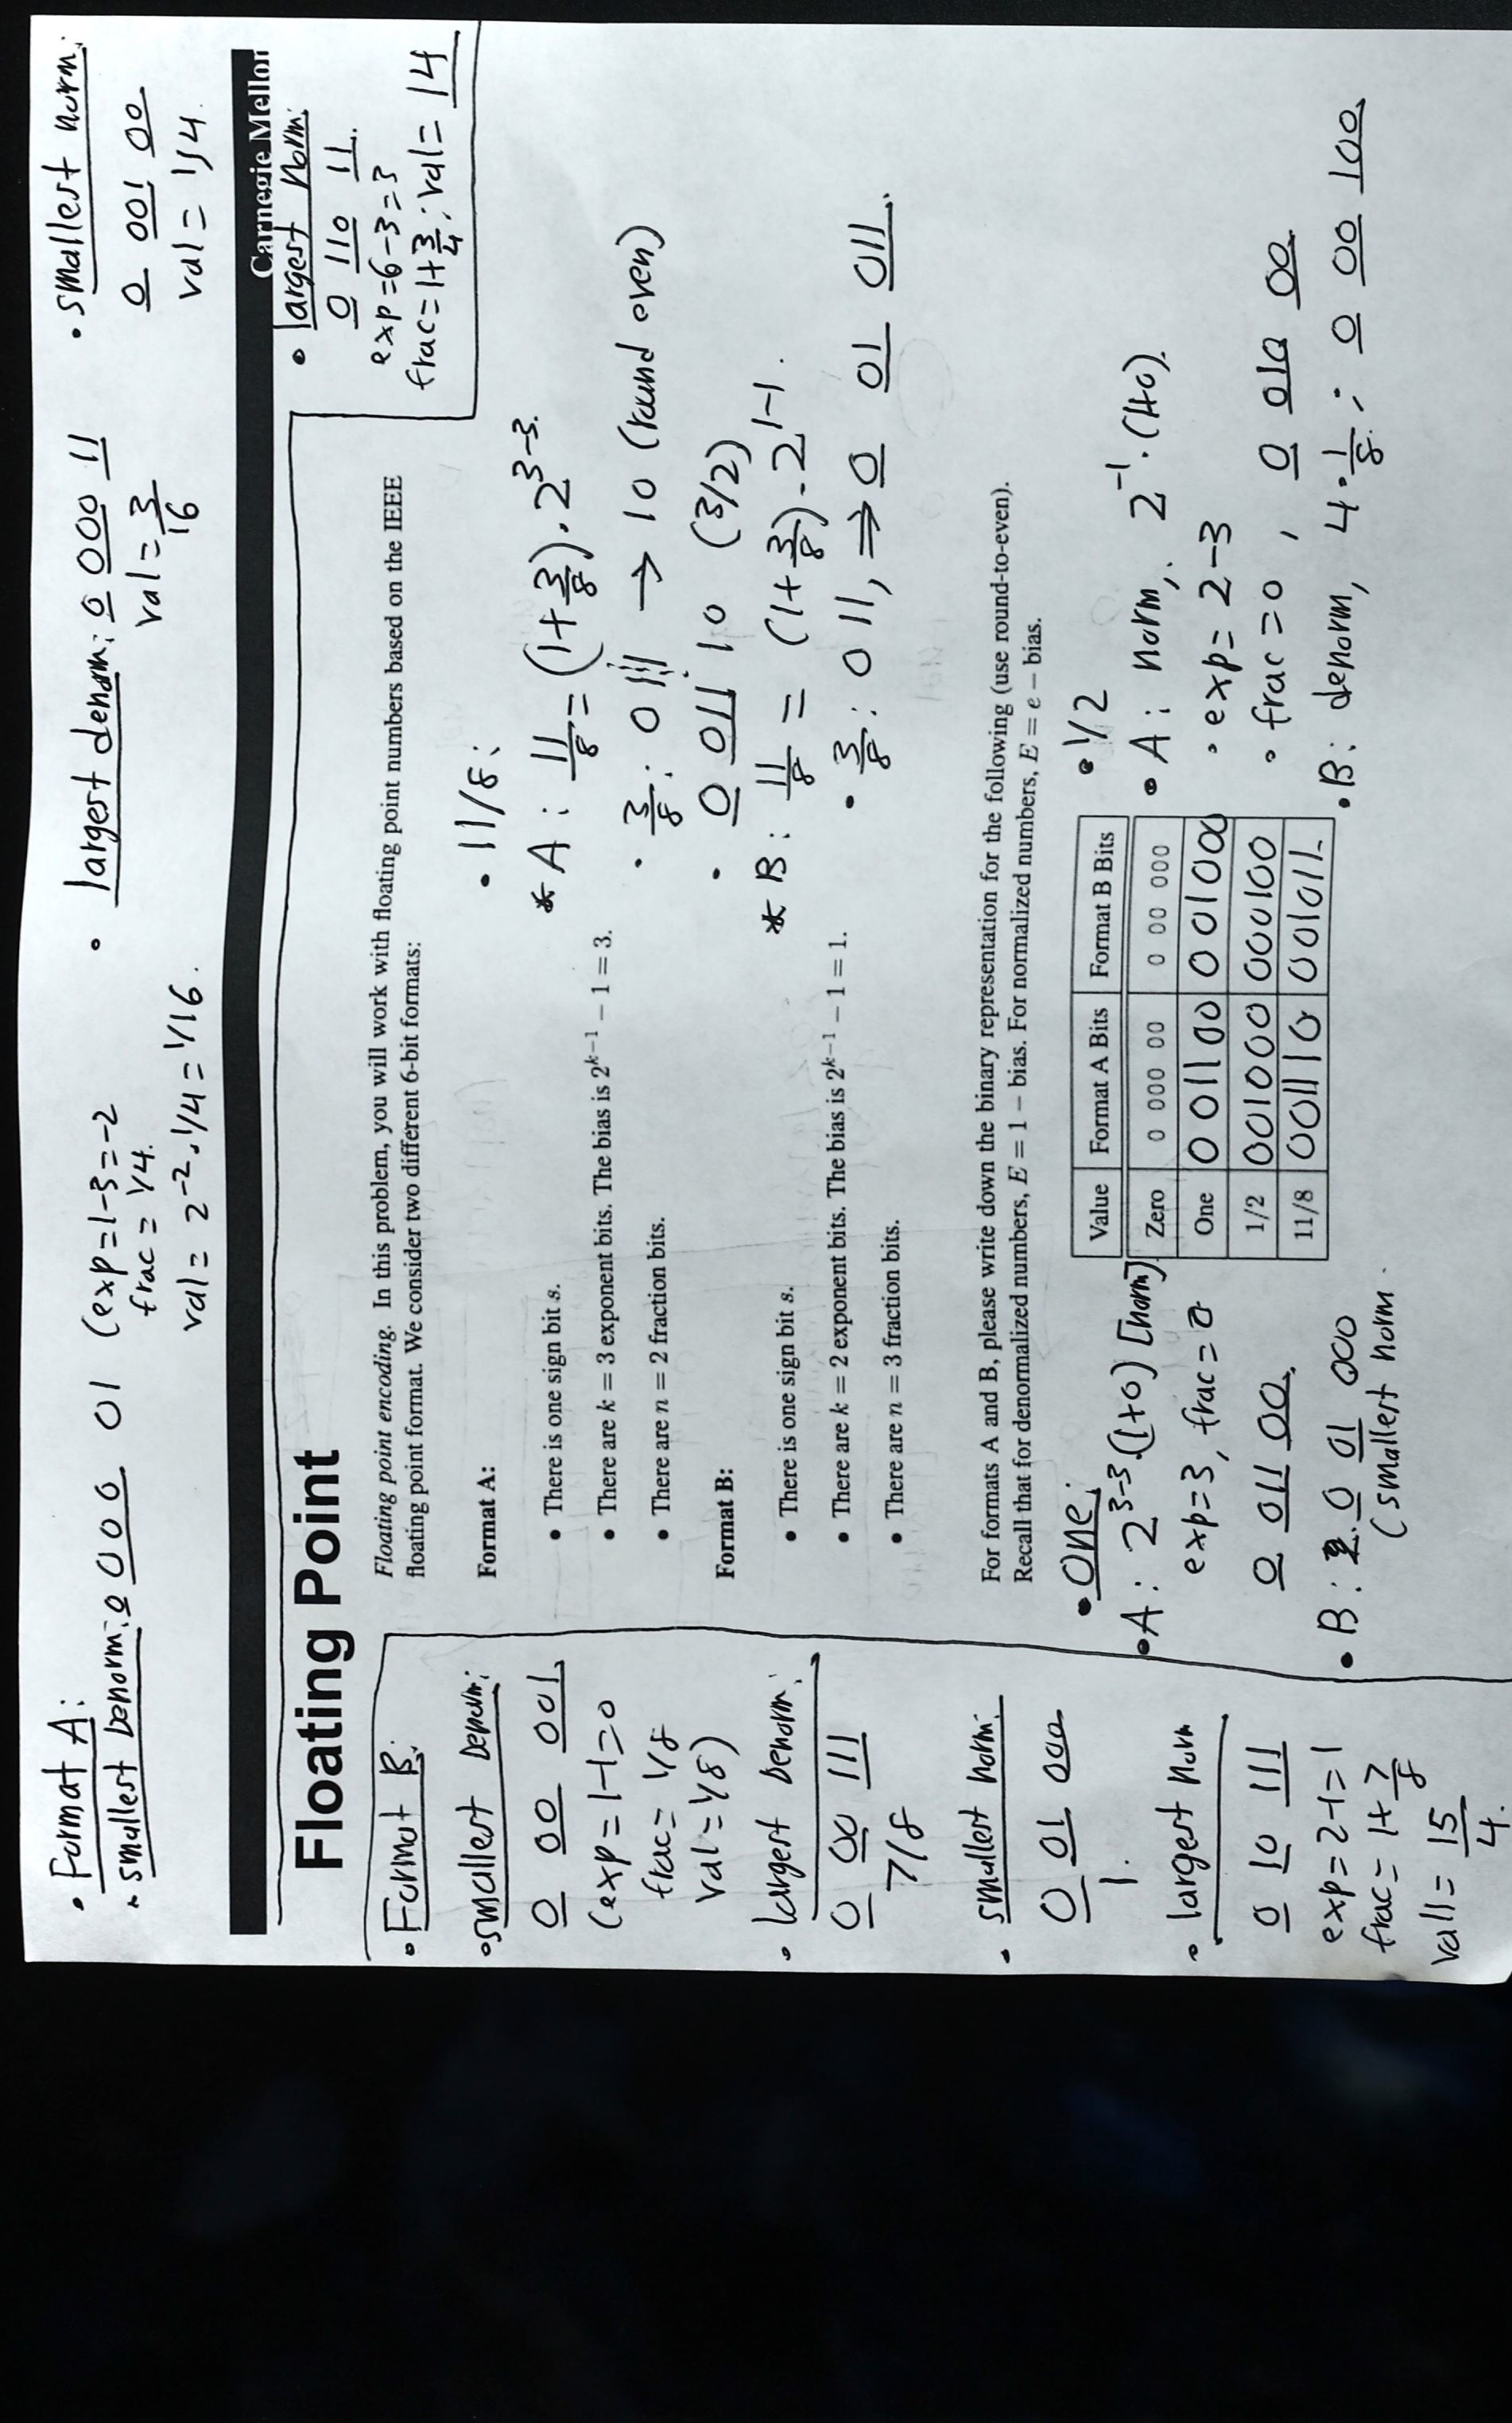 • Format A:
• smallest Denorm: 0 000 01 (exp=1-3=-2
frac = 1/4.
val = 2^-2 . 1/4 = 1/16.
• largest denorm: 0 000 11
val = 3/16
• smallest norm:
0 001 00
val = 1/4.
Carnegie Mellon
• largest norm:
0 110 11.
exp=6-3=3
frac=1+3/4; val= 14
Floating Point
Floating point encoding. In this problem, you will work with floating point numbers based on the IEEE
floating point format. We consider two different 6-bit formats:
Format A:
• There is one sign bit s.
• There are k = 3 exponent bits. The bias is 2^k−1 − 1 = 3.
• There are n = 2 fraction bits.
Format B:
• There is one sign bit s.
• There are k = 2 exponent bits. The bias is 2^k−1 − 1 = 1.
• There are n = 3 fraction bits.
• 11/8:
* A: 11/8 = (1+3/8).2^3-3.
• 3/8: 011 → 10 (round even)
• 0 011 10 (3/2)
* B: 11/8 = (1+3/8).2^1-1.
• 3/8: 011, ⇒ 0 01 011.
For formats A and B, please write down the binary representation for the following (use round-to-even).
Recall that for denormalized numbers, E = 1 − bias. For normalized numbers, E = e − bias.
Value Format A Bits Format B Bits
Zero 0 000 00 0 00 000
One 0 011 00 0 01 000
1/2 0 010 00 0 00 100
11/8 0 011 10 0 01 011
• One:
• A: 2^3-3.(1+0) [norm]
exp=3, frac=0
0 011 00.
• B: 0 01 000
(smallest norm.
• 1/2
• A: norm, 2^-1.(1+0).
• exp= 2-3
• frac=0, 0 010 00
• B: denorm, 4.1/8: 0 00 100
• Format B:
• smallest Denorm:
0 00 001
(exp=1-1=0
frac= 1/8
val=1/8)
• largest Denorm:
0 00 111
7/8
• smallest norm:
0 01 000
1.
• largest norm
0 10 111
exp=2-1=1
frac= 1+7/8
val= 15/4.